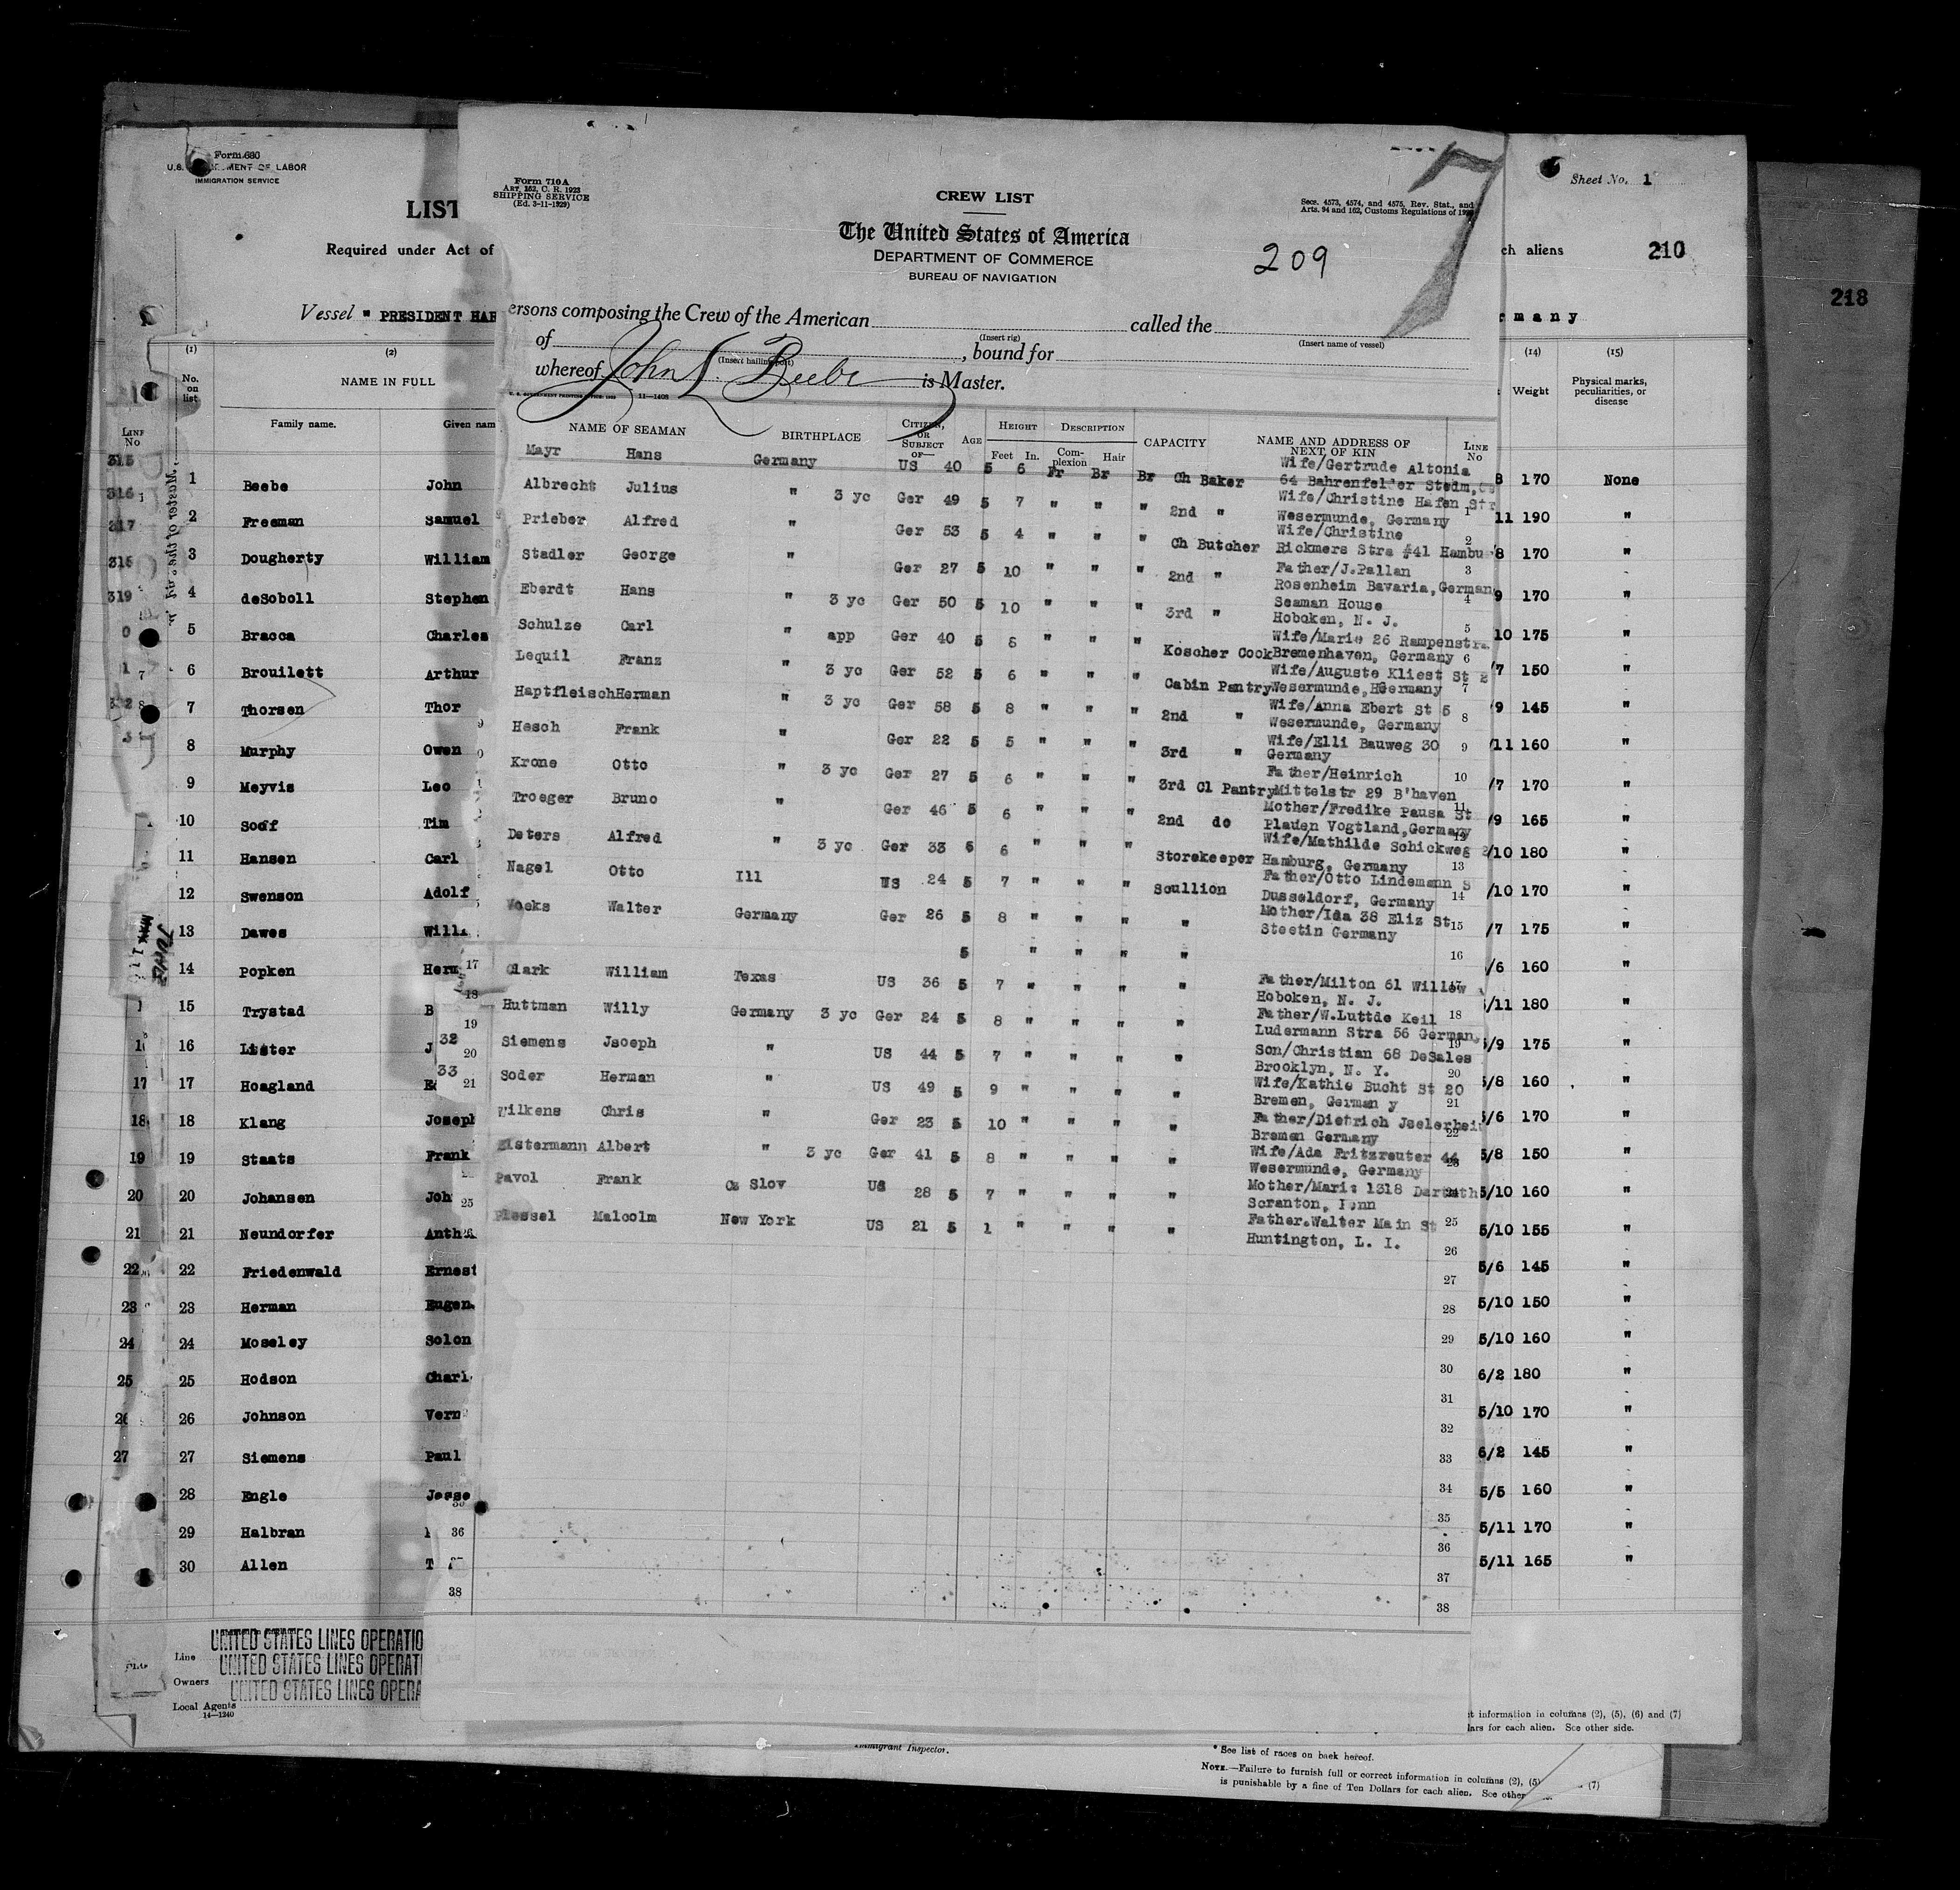 Form 680
U.S. DEPARTMENT OF LABOR
IMMIGRATION SERVICE
LIST
Required under Act of
Vessel " PRESIDENT HAR
(1)
(2)
No. on list
NAME IN FULL
Family name.
Given nam
LINE No
1 Beebe John
2 Freeman Samuel
3 Dougherty William
4 deSoboll Stephen
5 Bracca Charles
6 Brouilett Arthur
7 Thorsen Thor
8 Murphy Owen
9 Meyvis Leo
10 Soof Tim
11 Hansen Carl
12 Swenson Adolf
13 Dawes Willi
14 Popken Herm
15 Trystad B
16 Lister J
17 17 Hoagland E
18 18 Klang Joseph
19 19 Staats Frank
20 20 Johansen Joh
21 21 Neundorfer Anth
22 22 Friedenwald Ernest
23 23 Herman Eugen
24 24 Moseley Solon
25 25 Hodson Charl
26 26 Johnson Vern
27 27 Siemens Paul
28 Engle Jesse
29 Halbran
30 Allen T
Line UNITED STATES LINES OPERATIO
Owners UNITED STATES LINES OPERATI
Local Agents UNITED STATES LINES OPERA
14—1240
Form 710A
ART. 162, C. R. 1923
SHIPPING SERVICE
(Ed. 3-11-1929)
CREW LIST
Secs. 4573, 4574, and 4575, Rev. Stat., and
Arts. 94 and 162, Customs Regulations of
The United States of America
DEPARTMENT OF COMMERCE
BUREAU OF NAVIGATION
209
ersons composing the Crew of the American called the
(Insert rig) (Insert name of vessel)
of , bound for
(Insert hailing port)
whereof John L Beebe is Master.
11—1408
NAME OF SEAMAN BIRTHPLACE CITIZEN, OR SUBJECT OF— AGE HEIGHT Feet In. DESCRIPTION Complexion Hair CAPACITY NAME AND ADDRESS OF NEXT OF KIN LINE No
Mayr Hans Germany US 40 5 6 Fr Br Br Ch Baker Wife/Gertrude Altonia
64 Bahrenfelder Stedm,
Albrecht Julius " 3 yc Ger 49 5 7 " " " 2nd " Wife/Christine Hafen Str 1
Wesermunde, Germany
Prieber Alfred " Ger 53 5 4 " " " Ch Butcher Wife/Christine 2
Rickmers Stra #41 Hambu
Stadler George " Ger 27 5 10 " " " 2nd " Father/J.Pallan 3
Rosenheim Bavaria,German
Eberdt Hans " 3 yc Ger 50 5 10 " " " 3rd " Seaman House 4
Hoboken, N. J.
Schulze Carl " app Ger 40 5 8 " " " Koscher Cook Wife/Marie 26 Rampenstra 5
Bremenhaven, Germany 6
Lequil Franz " 3 yc Ger 52 5 6 " " " Cabin Pantry Wife/Auguste Kliest St 2
Wesermunde, Germany 7
HaptfleischHerman " 3 yc Ger 58 5 8 " " " 2nd " Wife/Anna Ebert St 5
Wesermunde, Germany 8
Hesch Frank " Ger 22 5 5 " " " 3rd " Wife/Elli Bauweg 30 9
Germany
Krone Otto " 3 yc Ger 27 5 6 " " " 3rd Cl Pantry Father/Heinrich 10
Mittelstr 29 B'haven
Troeger Bruno " Ger 46 5 6 " " " 2nd do Mother/Fredike Pausa St 11
Plauen Vogtland,Germany 12
Deters Alfred " 3 yc Ger 33 5 6 " " " Storekeeper Wife/Mathilde Schickweg
Hamburg, Germany 13
Nagel Otto Ill US 24 5 7 " " " Scullion Father/Otto Lindemann S
Dusseldorf, Germany 14
Weeks Walter Germany Ger 26 5 8 " " " " Mother/Ida 38 Eliz St 15
Steetin Germany
5 " " " " 16
Clark William Texas US 36 5 7 " " " " Father/Milton 61 Willow 17
Hoboken, N. J.
Huttman Willy Germany 3 yc Ger 24 5 8 " " " " Father/W.Luttde Keil 18
Ludermann Stra 56 German 19
Siemens Jsoeph " US 44 5 7 " " " " Son/Christian 68 DeSales
Brooklyn, N. Y. 20
Soder Herman " US 49 5 9 " " " " Wife/Kathie Bucht St 20
Bremen, German y 21
Wilkens Chris " Ger 23 5 10 " " " " Father/Dietrich Jselerhei
Bremen Germany 22
Eistermann Albert " 3 yc Ger 41 5 8 " " " " Wife/Ada Fritzreuter 44 23
Wesermunde, Germany
Pavol Frank Cz Slov US 28 5 7 " " " " Mother/Maria 1318 24
Scranton, Penn
Plessel Malcolm New York US 21 5 1 " " " " Father.Walter Main St 25
Huntington, L. I.
26
27
28
29
30
31
32
33
34
35
36
37
38
Sheet No. 1
ch aliens 210
218
rmany
(14) (15)
Weight Physical marks, peculiarities, or disease
8 170 None
11 190 "
/8 170 "
9 170 "
10 175 "
/7 150 "
/9 145 "
/11 160 "
/7 170 "
/9 165 "
/10 180 "
/10 170 "
/7 175 "
/6 160 "
/11 180 "
5/9 175 "
5/8 160 "
5/6 170 "
5/8 150 "
5/10 160 "
5/10 155 "
5/6 145 "
5/10 150 "
5/10 160 "
6/2 180 "
5/10 170 "
6/2 145 "
5/5 160 "
5/11 170 "
5/11 165 "
t information in columns (2), (5), (6) and (7)
lars for each alien. See other side.
Immigrant Inspector.
* See list of races on back hereof.
NOTE.—Failure to furnish full or correct information in columns (2), (5) (7)
is punishable by a fine of Ten Dollars for each alien. See other